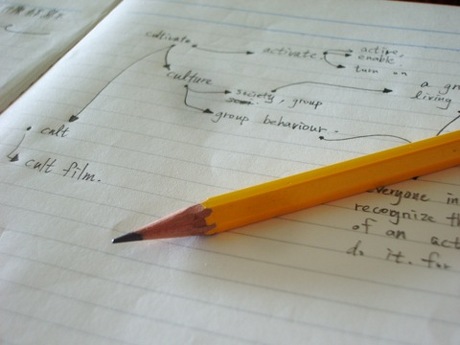 cultivate
activate
active,
enable
turn on
culture
society, group
a gr
living
group behaviour.
cult
cult film.
everyone in
recognize th
of an act
do it. for